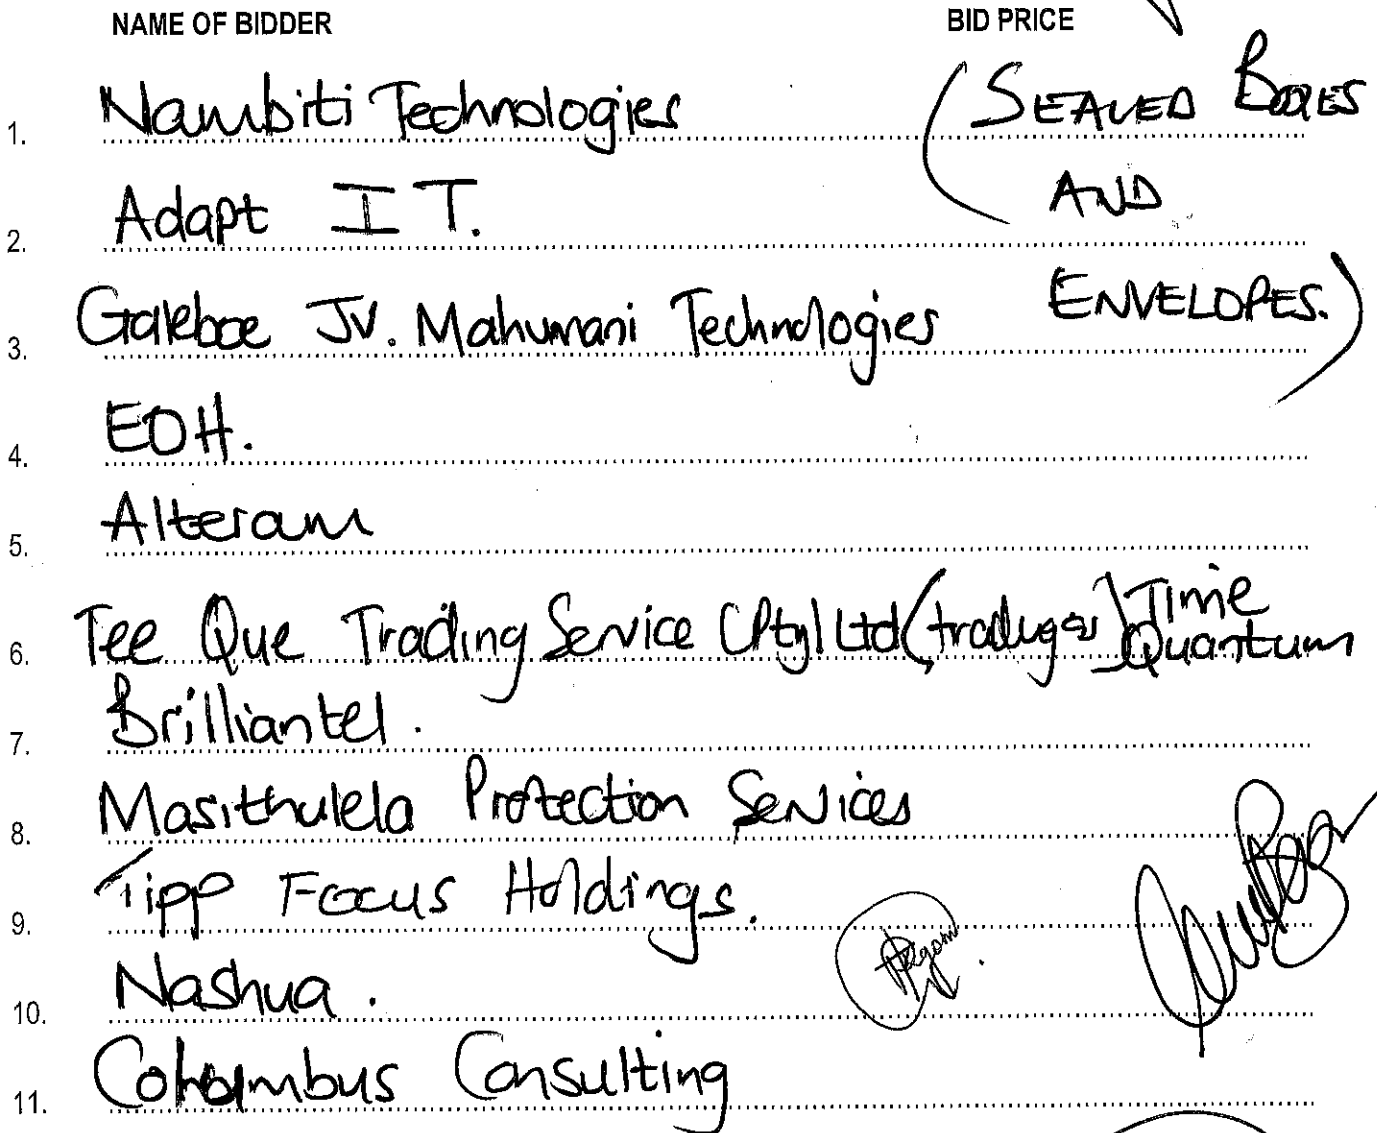 NAME OF BIDDER BID PRICE
1. Nambiti Technologies (SEALED BOXES
2. Adapt IT. AND
3. Galeboe JV. Mahumani Technologies ENVELOPES.)
4. EOH.
5. Alteram
6. Tee Que Trading Service (Pty) Ltd (trading as) Time Quantum
7. Brilliantel.
8. Masithulela Protection Services
9. Tipp Focus Holdings.
10. Nashua.
11. Columbus Consulting